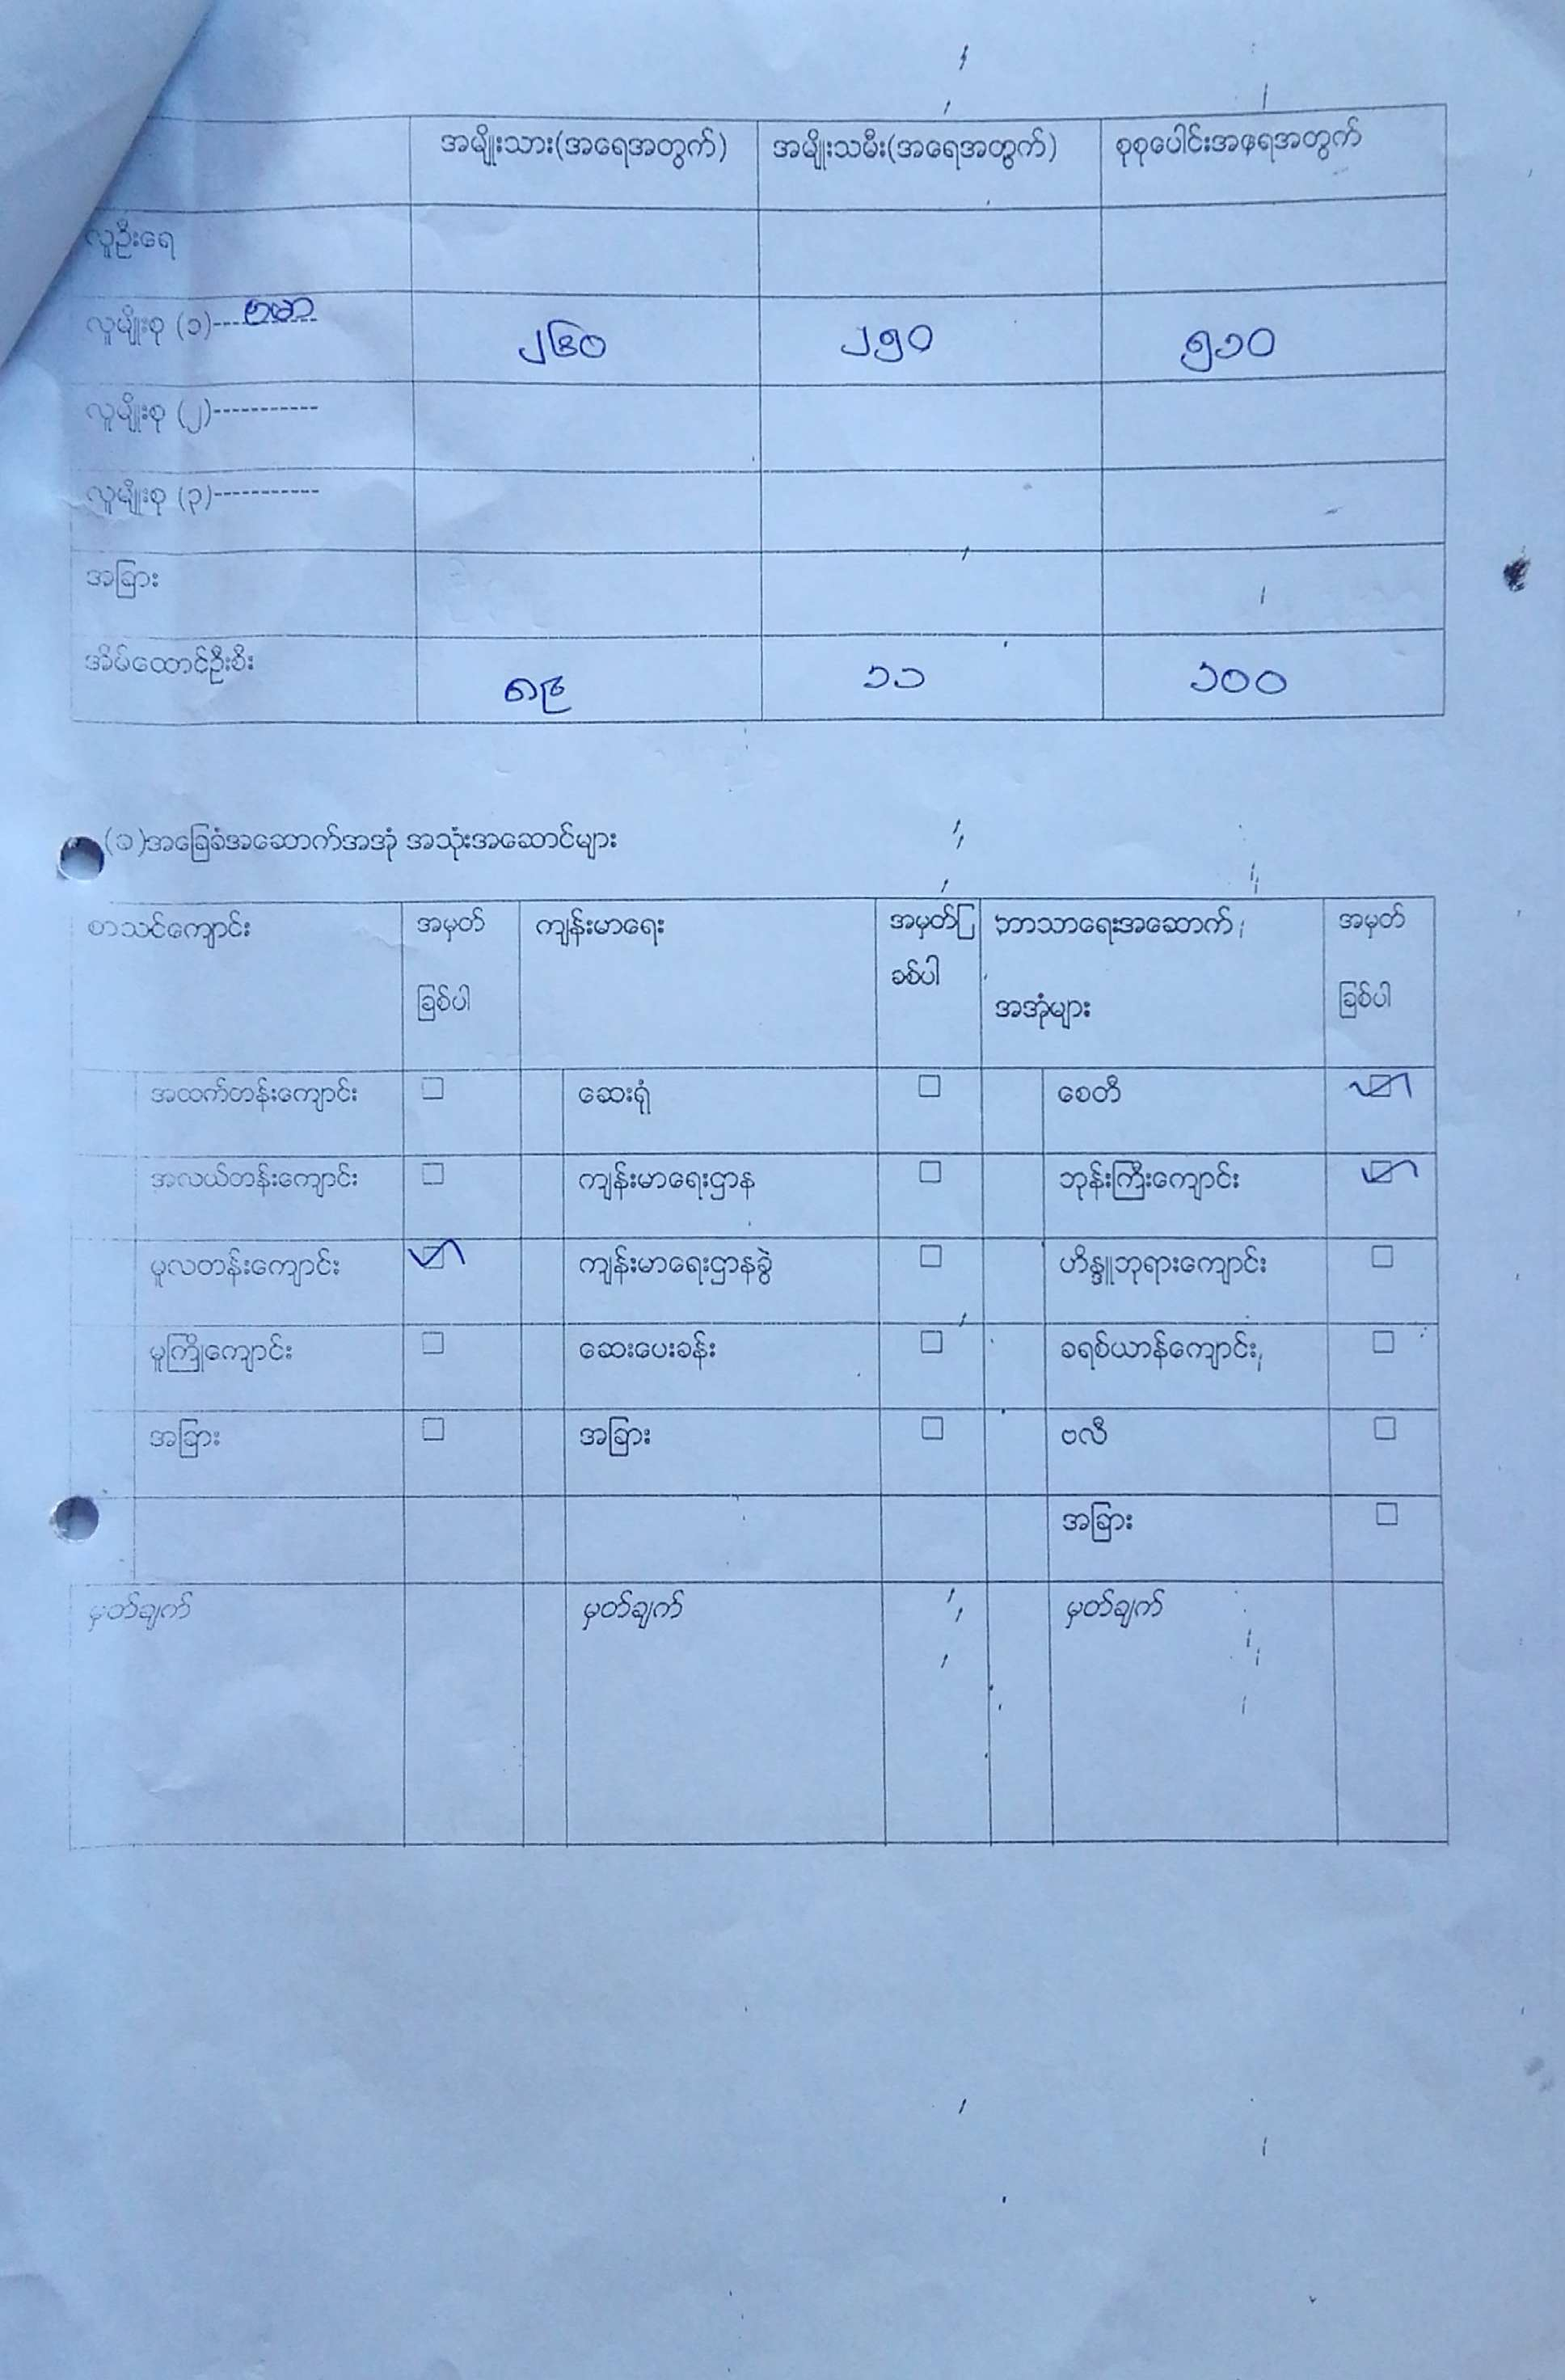 အမျိုးသား(အရေအတွက်) အမျိုးသမီး(အရေအတွက်) စုစုပေါင်းအရေအတွက်
လူဦးရေ
လူမျိုးစု (၁)---ဗမာ--- ၂၆၀ ၂၅၀ ၅၁၀
လူမျိုးစု (၂)-----------
လူမျိုးစု (၃)-----------
အခြား
အိမ်ထောင်ဦးစီး ၈၉ ၁၁ ၁၀၀
(၁)အခြေခံအဆောက်အအုံ အသုံးအဆောင်များ
စာသင်ကျောင်း အမှတ် ကျန်းမာရေး အမှတ်ြ ဘာသာရေးအဆောက် အမှတ်
ခြစ်ပါ ခစ်ပါ အအုံများ ခြစ်ပါ
အထက်တန်းကျောင်း □ ဆေးရုံ □ စေတီ ☑
အလယ်တန်းကျောင်း □ ကျန်းမာရေးဌာန □ ဘုန်းကြီးကျောင်း ☑
မူလတန်းကျောင်း ☑ ကျန်းမာရေးဌာနခွဲ □ ဟိန္ဒူဘုရားကျောင်း □
မူကြိုကျောင်း □ ဆေးပေးခန်း □ ခရစ်ယာန်ကျောင်း □
အခြား □ အခြား □ ဗလီ □
အခြား □
မှတ်ချက် မှတ်ချက် မှတ်ချက်